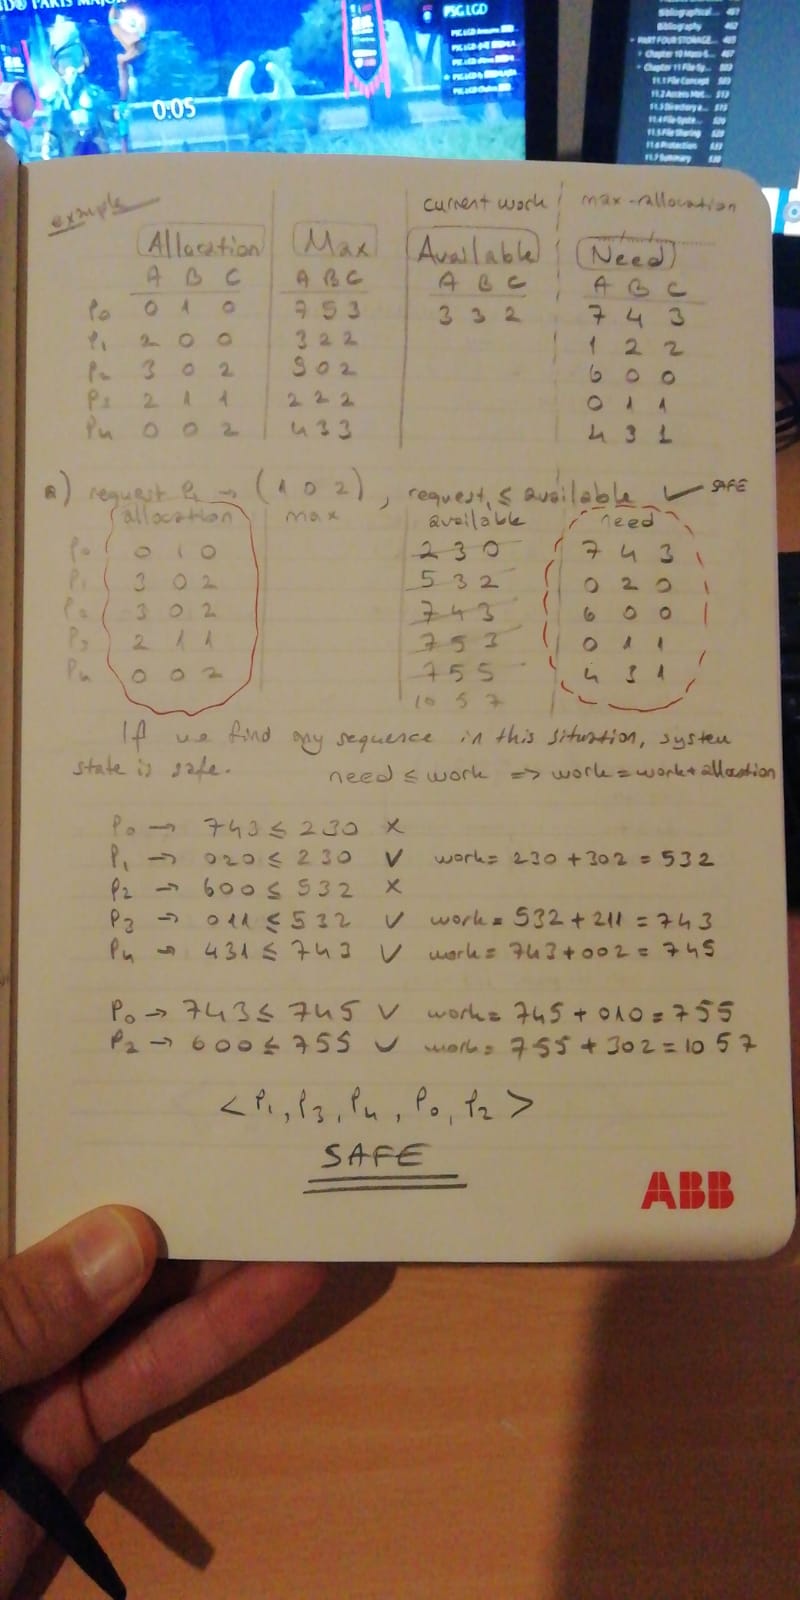 PARIS MAJOR
PSG.LGD
0:05
Bibliography
PART FOUR STORAGE...
Chapter 10 Mass-S...
Chapter 11 File-Sy...
11.1 File Concept 503
11.2 Access Met... 513
11.3 Directory a... 515
11.4 File-Syste... 526
11.5 File Sharing 528
11.6 Protection 533
11.7 Summary 538
example
current work max-allocation
Allocation Max Available Need
A B C A B C A B C A B C
P0 0 1 0 7 5 3 3 3 2 7 4 3
P1 2 0 0 3 2 2 1 2 2
P2 3 0 2 9 0 2 6 0 0
P3 2 1 1 2 2 2 0 1 1
P4 0 0 2 4 3 3 4 3 1
a) request P1 → (1 0 2), request ≤ available ✓ SAFE
allocation max available need
P0 0 1 0 2 3 0 7 4 3
P1 3 0 2 5 3 2 0 2 0
P2 3 0 2 7 4 3 6 0 0
P3 2 1 1 7 5 3 0 1 1
P4 0 0 2 7 5 5 4 3 1
10 5 7
If we find any sequence in this situation, system
state is safe. need ≤ work => work = work + allocation
P0 → 743 ≤ 230 x
P1 → 020 ≤ 230 ✓ work = 230 + 302 = 532
P2 → 600 ≤ 532 x
P3 → 011 ≤ 532 ✓ work = 532 + 211 = 743
P4 → 431 ≤ 743 ✓ work = 743 + 002 = 745
P0 → 743 ≤ 745 ✓ work = 745 + 010 = 755
P2 → 600 ≤ 755 ✓ work = 755 + 302 = 10 5 7
< P1, P3, P4, P0, P2 >
SAFE
ABB